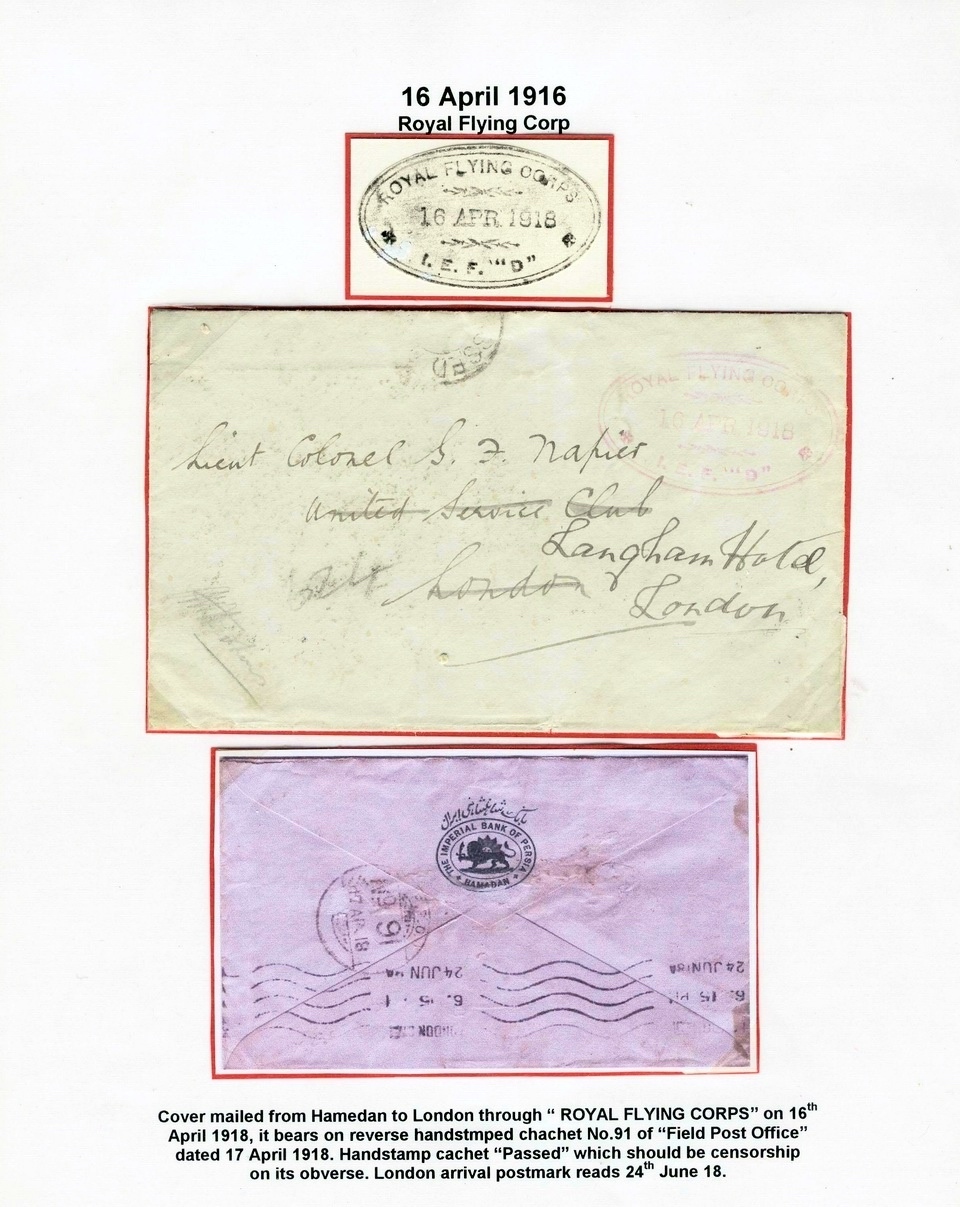 16 April 1916
Royal Flying Corp
ROYAL FLYING CORPS
16 APR 1918
I. E. F. "D"
SSED
ROYAL FLYING CO
16 APR 1918
I. E. F. "D"
Lieut Colonel G. F. Napier
United Service Club
Langham Hotel,
London
London
بانک شاهنشاهی ایران
THE IMPERIAL BANK OF PERSIA
HAMADAN
No 91
17 APR 18
24 JUN 18
24 JUN 18
6. 15
6. 15 PM
LONDON
Cover mailed from Hamedan to London through “ ROYAL FLYING CORPS” on 16th
April 1918, it bears on reverse handstmped chachet No.91 of “Field Post Office”
dated 17 April 1918. Handstamp cachet “Passed” which should be censorship
on its obverse. London arrival postmark reads 24th June 18.